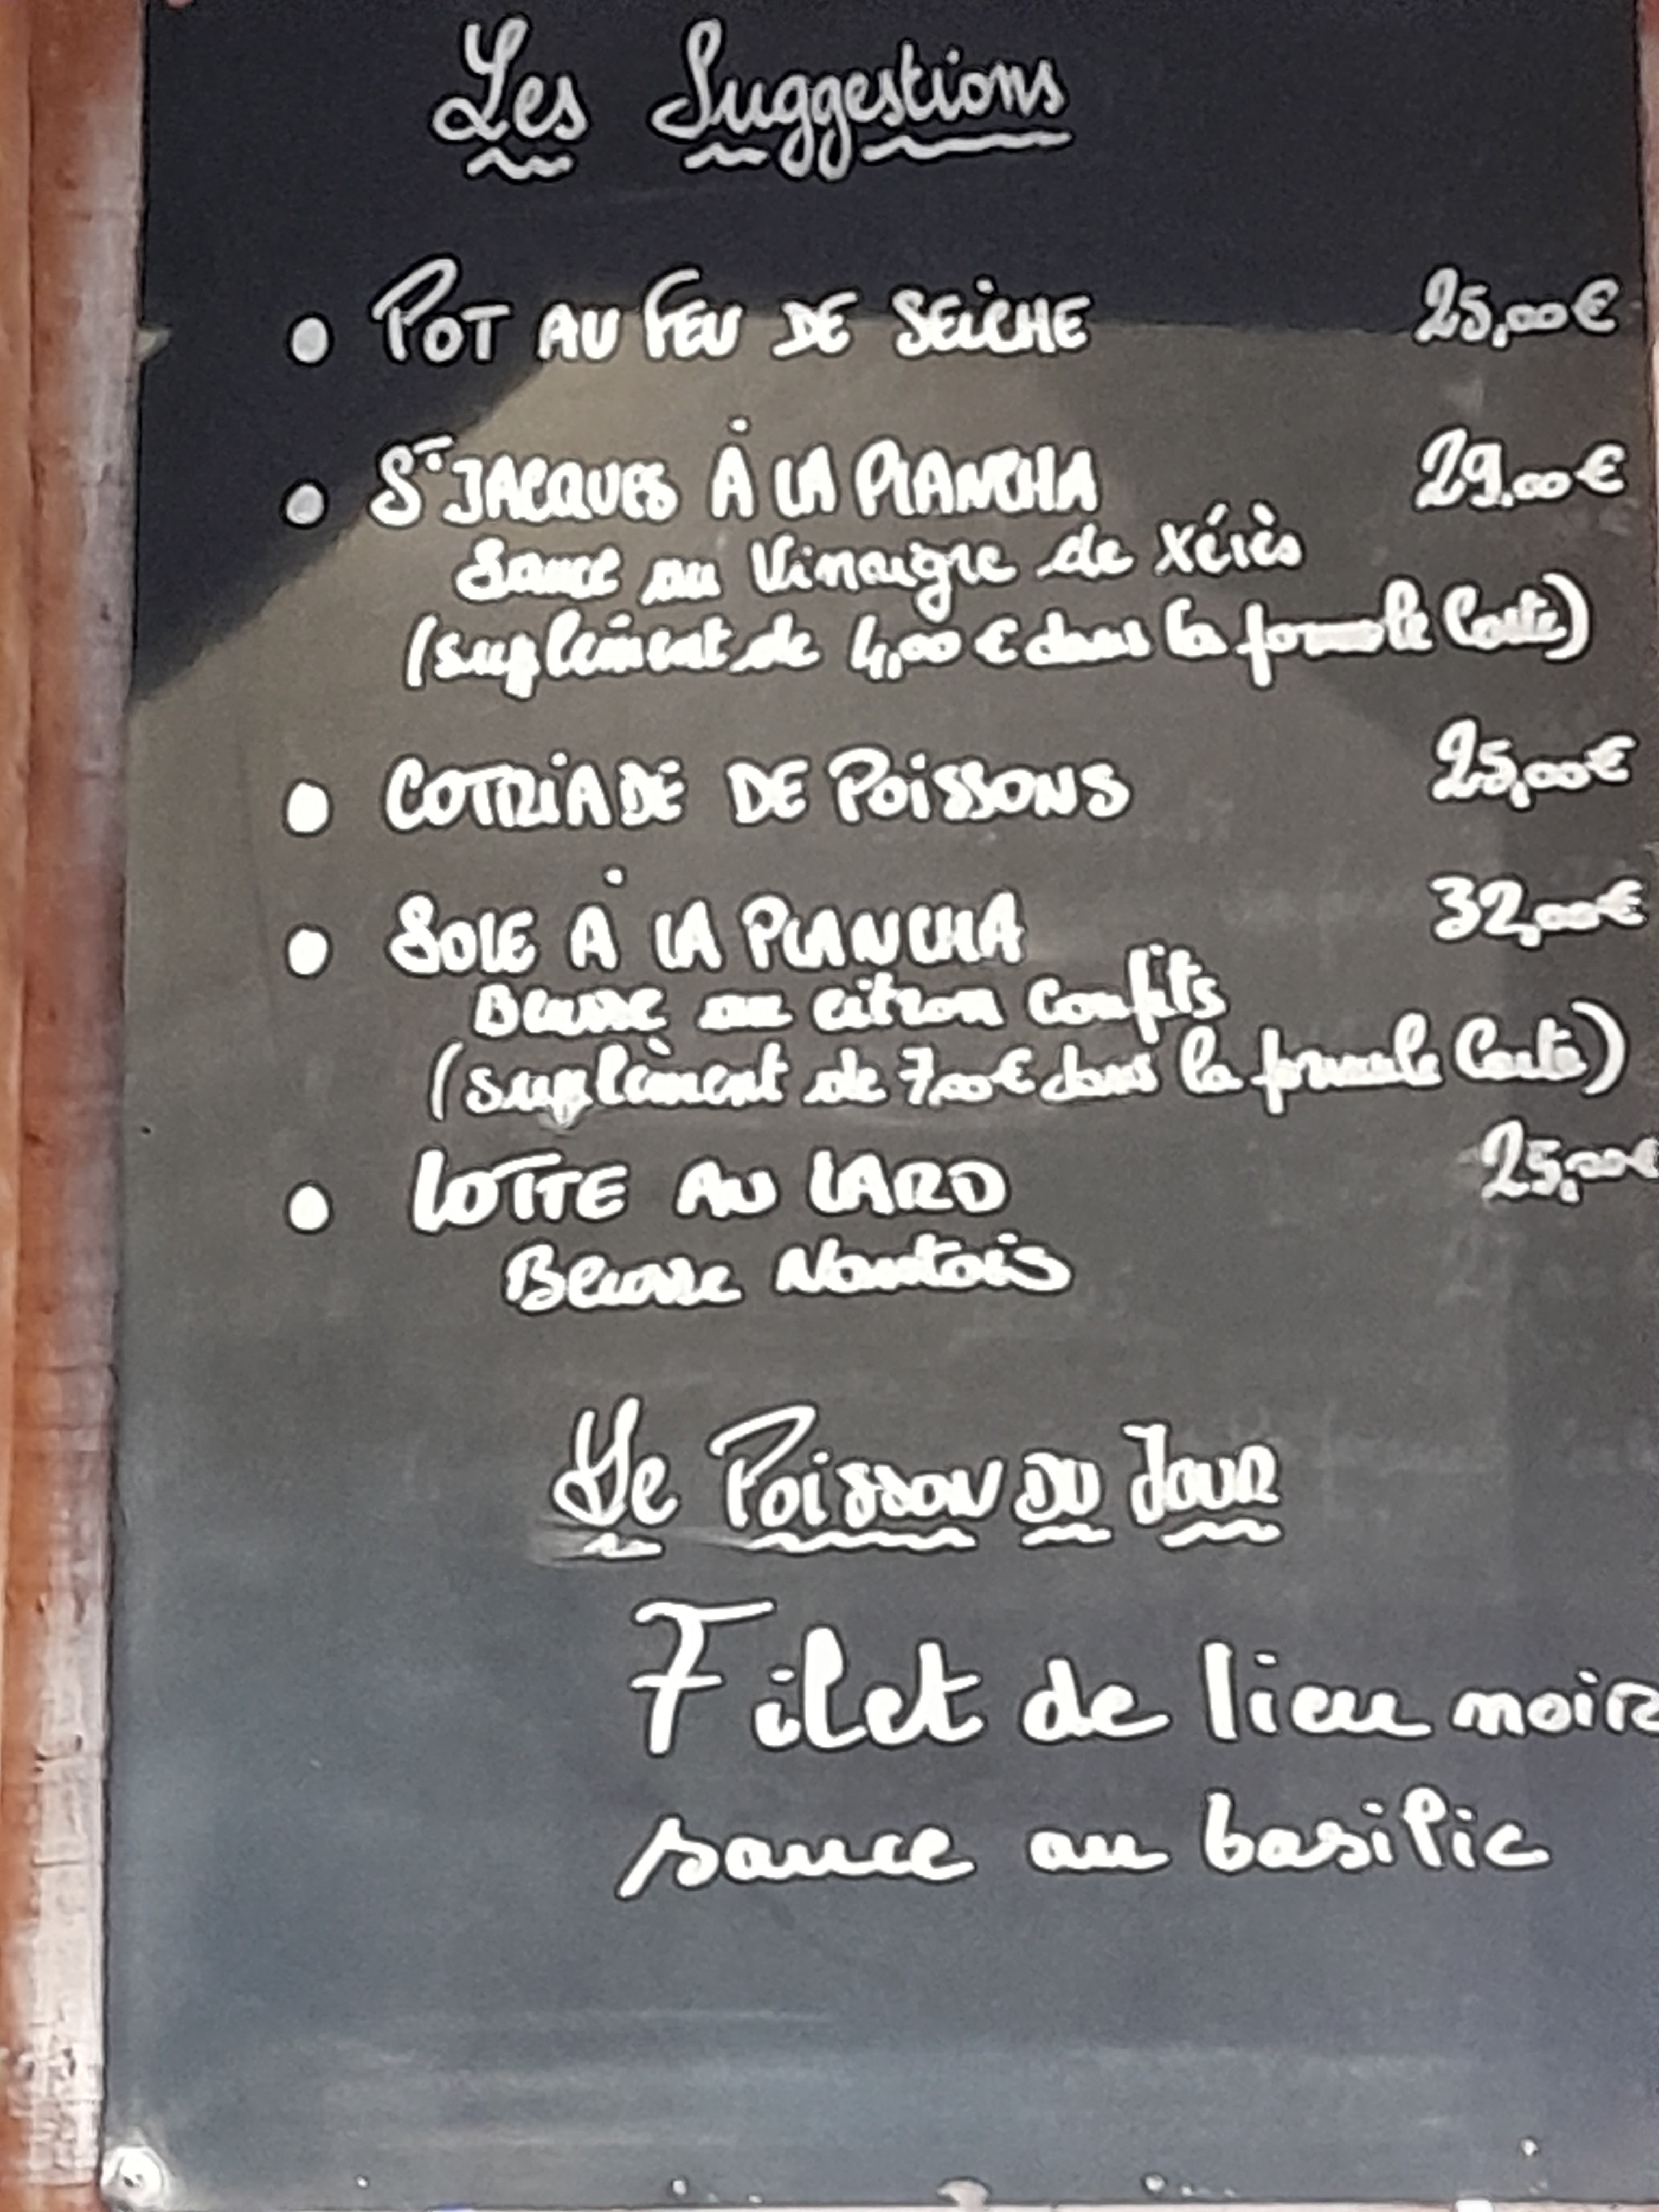 Les Suggestions
• POT AU FEU DE SEICHE 25,00€
• St JACQUES À LA PLANCHA 29.00€
Sauce au Vinaigre de Xérès
(suplément de 4,00 € dans la formule Carte)
• COTRIADE DE POISSONS 25,00€
• SOLE À LA PLANCHA 32,00€
Beurre au citron Confits
(suplèment de 7,00€ dans la formule Carte)
• LOTTE AU LARD 25,00€
Beurre Nantais
Le POISSON DU JOUR
Filet de lieu noir
sauce au basilic